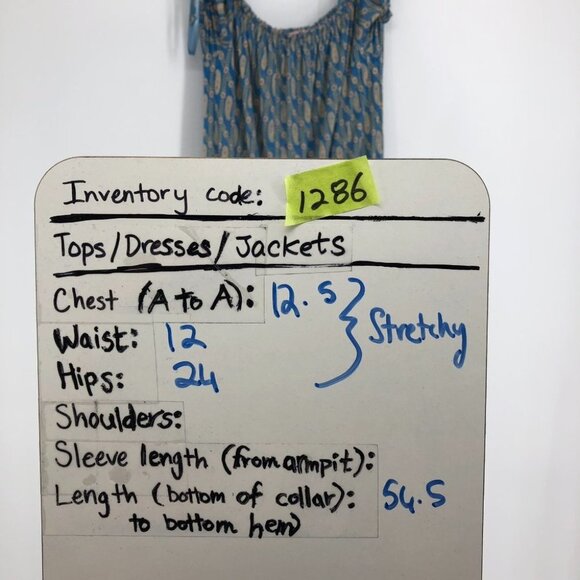 Inventory code: 1286
Tops/Dresses/Jackets
Chest (A to A): 12.5
Waist: 12
Hips: 24
Stretchy
Shoulders:
Sleeve length (from armpit):
Length (bottom of collar): 54.5
to bottom hem)